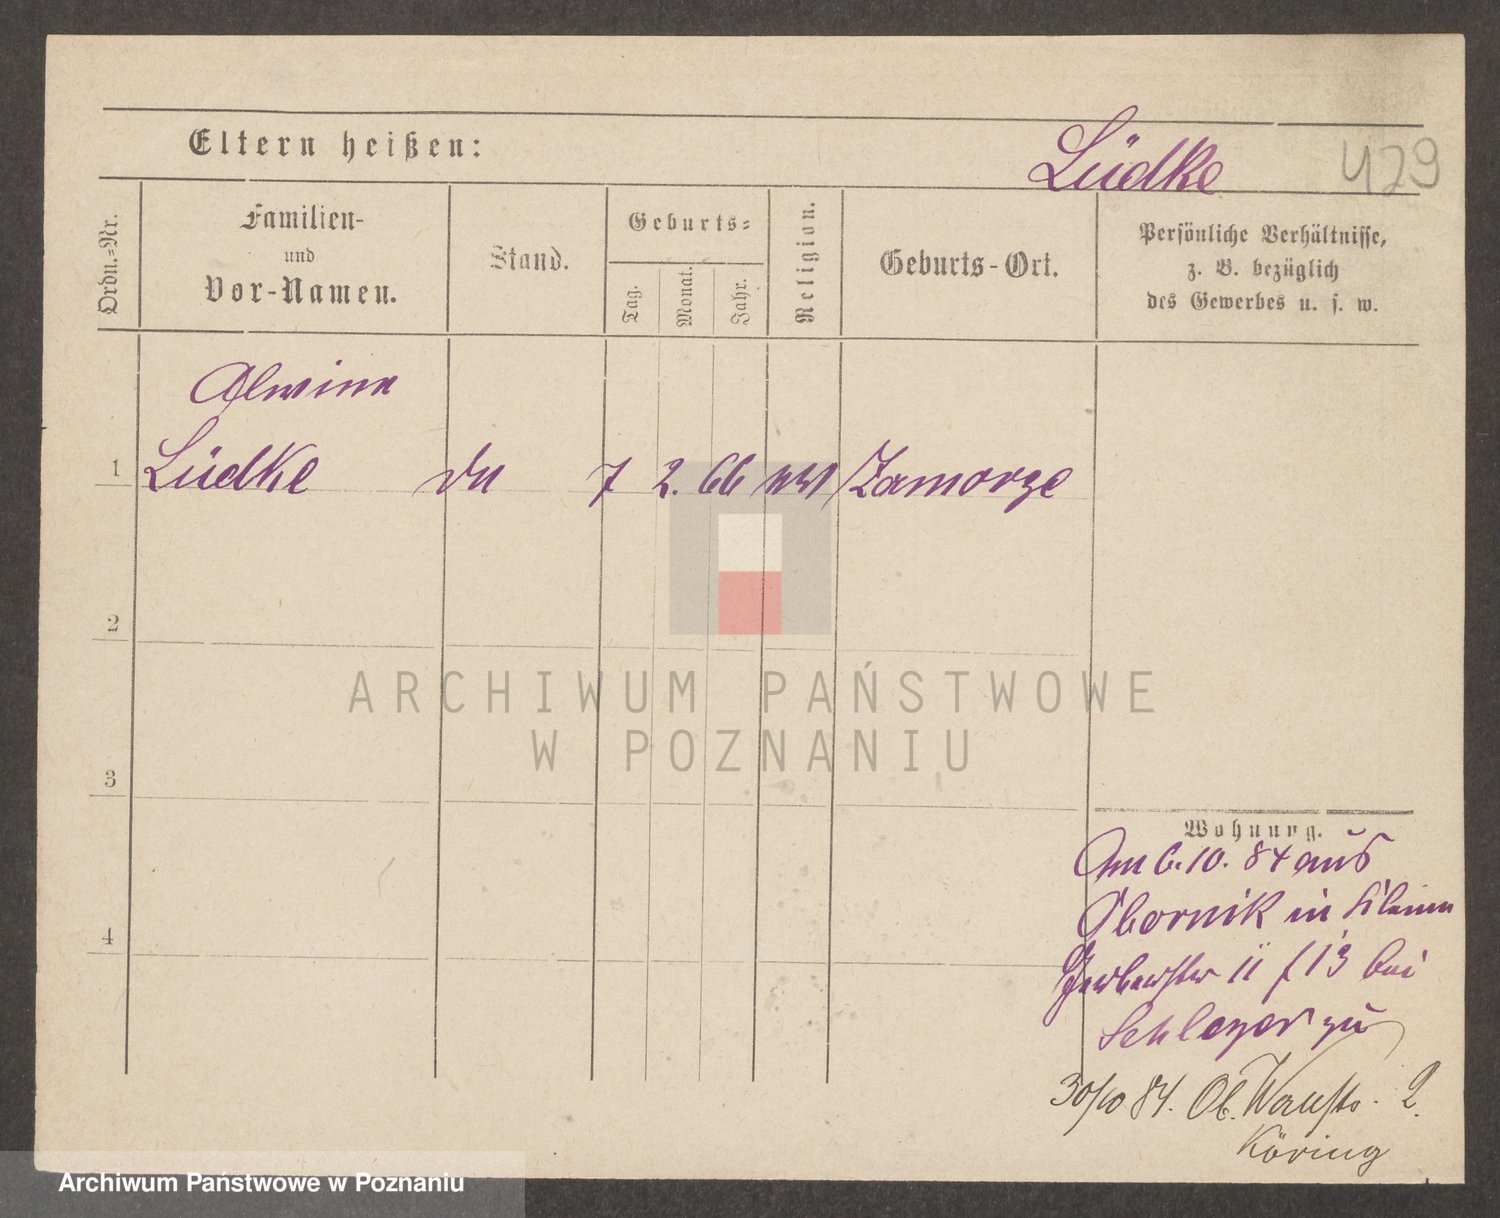 Eltern heißen:
Lüdke
429
Ordn.=Nr.
Familien-
und
Vor-Namen.
Stand.
Geburts=
Tag.
Monat.
Jahr.
Religion.
Geburts-Ort.
Persönliche Verhältnisse,
z. B. bezüglich
des Gewerbes u. s. w.
Alwina
1 Lüdke 7 2. 66 Zamorze
2
3
4
ARCHIWUM PAŃSTWOWE
W POZNANIU
Wohnung.
Am 6. 10. 84 aus
Obornik in Klein
Gerberstr 11 f 13 bei
Schleyer zu
30/10 84. Ob. Wallstr. 2.
Köring
Archiwum Państwowe w Poznaniu